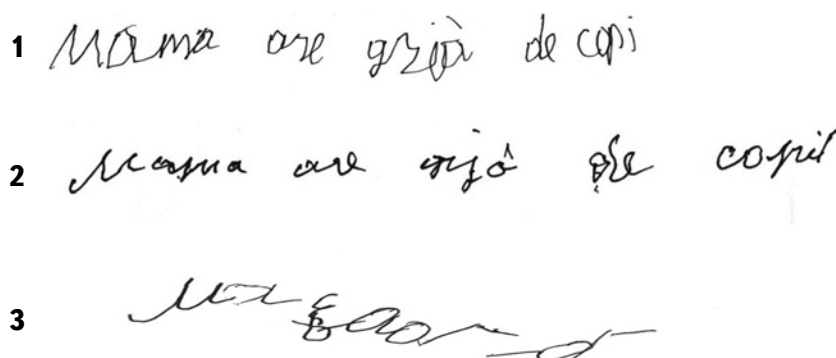 1 Mama are grijă de copi
2 Mama are grijă de copil
3